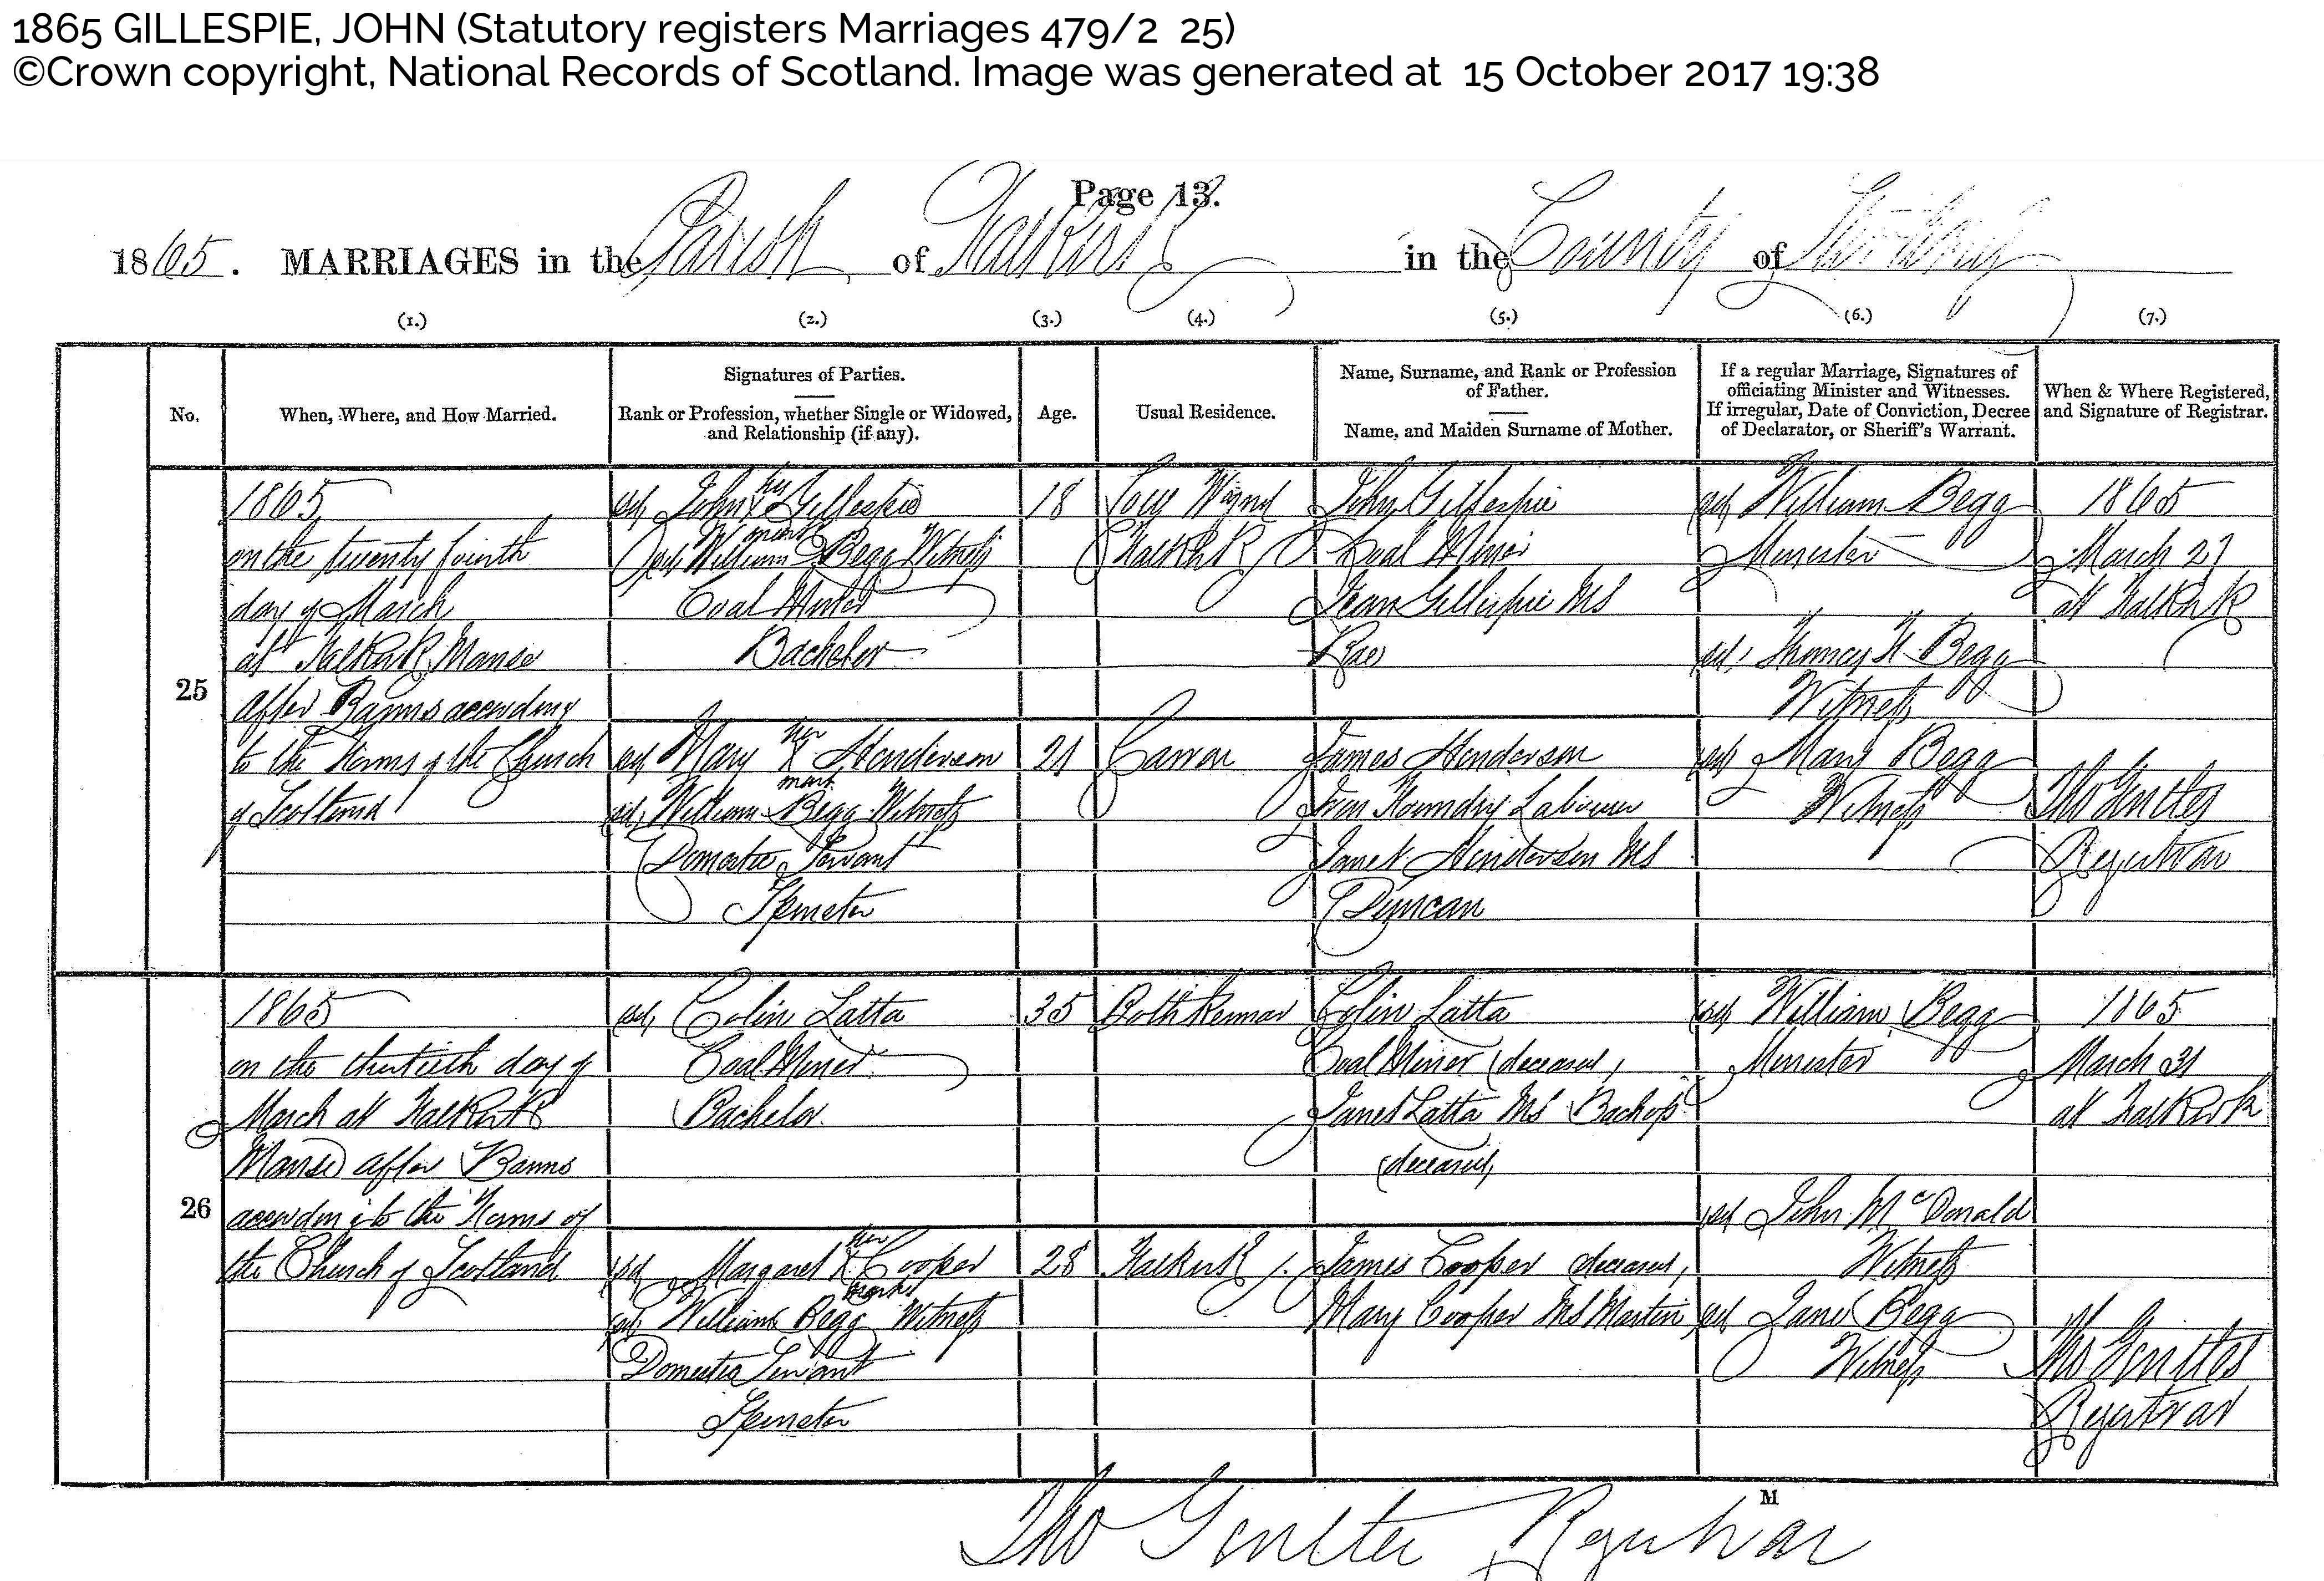 1865 GILLESPIE, JOHN (Statutory registers Marriages 479/2 25)
©Crown copyright, National Records of Scotland. Image was generated at 15 October 2017 19:38
Page 13.
1865. MARRIAGES in the Parish of Falkirk in the County of Stirling
(1.) (2.) (3.) (4.) (5.) (6.) (7.)
No.
When, Where, and How Married.
Signatures of Parties.
Rank or Profession, whether Single or Widowed,
and Relationship (if any).
Age.
Usual Residence.
Name, Surname, and Rank or Profession
of Father.
Name, and Maiden Surname of Mother.
If a regular Marriage, Signatures of
officiating Minister and Witnesses.
If irregular, Date of Conviction, Decree
of Declarator, or Sheriff's Warrant.
When & Where Registered,
and Signature of Registrar.
25
1865
on the twenty fourth
day of March
at Falkirk Manse
after Banns according
to the Forms of the Church
of Scotland
John his x mark Gillespie
William Begg Witness
Coal Miner
Bachelor
18
Wynd
Falkirk
John Gillespie
Coal Miner
Jean Gillespie MS
Rae
William Begg
Minister
Begg
Witness
Mary Begg
Witness
1865
March 27
at Falkirk
Tho
Registrar
Mary her x mark Henderson
William Begg Witness
Domestic Servant
Spinster
21
Carron
James Henderson
Iron Foundry Labourer
Janet Henderson MS
Duncan
26
1865
on the thirtieth day of
March at Falkirk
Manse after Banns
according to the Forms of
the Church of Scotland
Colin Latta
Coal Miner
Bachelor
35
Bothkennar
Colin Latta
Coal Miner (deceased)
Janet Latta MS
(deceased)
William Begg
Minister
John McDonald
Witness
Jane Begg
Witness
1865
March 31
at Falkirk
Tho
Registrar
Margaret her x mark Cooper
William Begg Witness
Domestic Servant
Spinster
28
Falkirk
James Cooper deceased,
Mary Cooper MS Martin
M
Tho Registrar